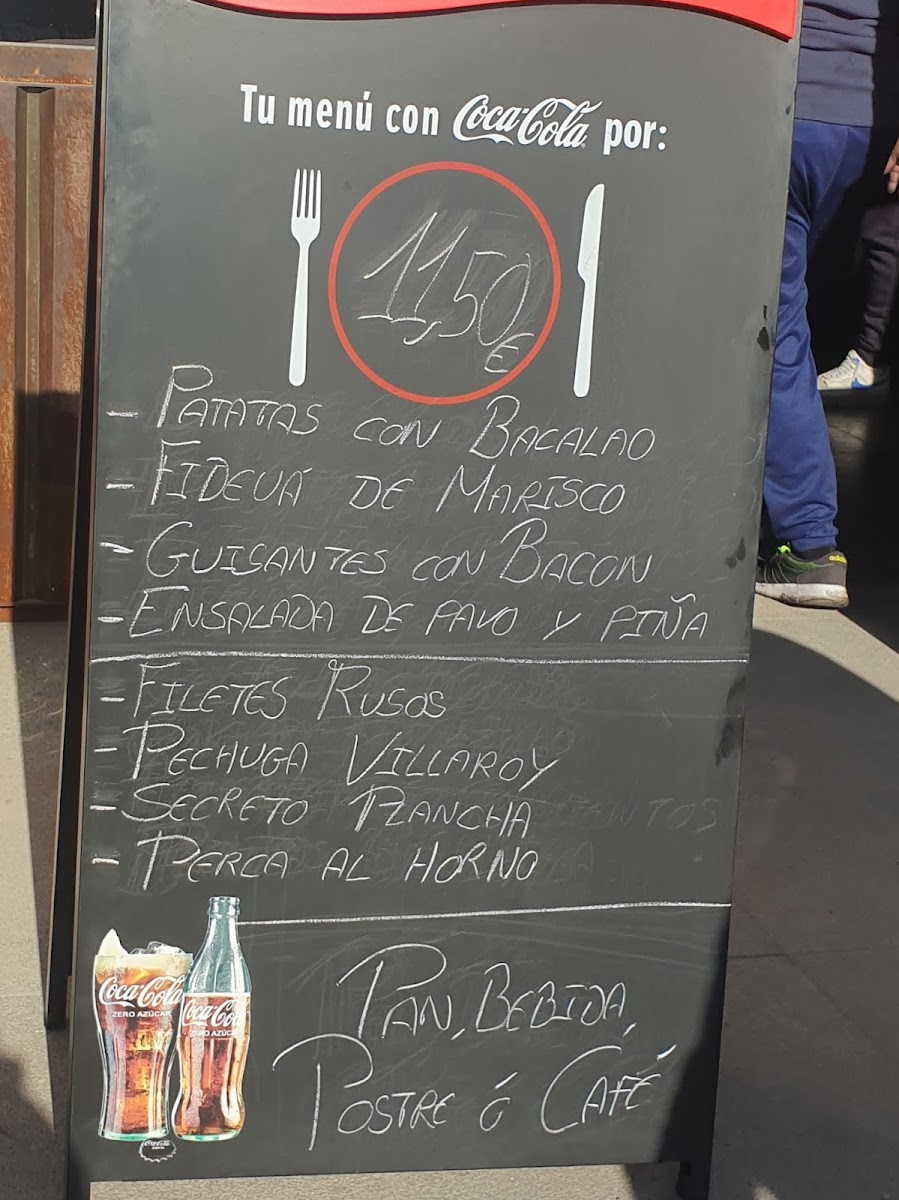 Tu menú con Coca-Cola por:
11,50
€
- PATATAS CON BACALAO
- FIDEUÁ DE MARISCO
- GUISANTES CON BACON
- ENSALADA DE PAVO Y PIÑA
- FILETES RUSOS
- PECHUGA VILLAROY
- SECRETO PLANCHA
- PERCA AL HORNO
PAN, BEBIDA,
POSTRE Ó CAFÉ
Coca-Cola
ZERO AZÚCAR
Coca-Cola
ZERO AZÚCAR